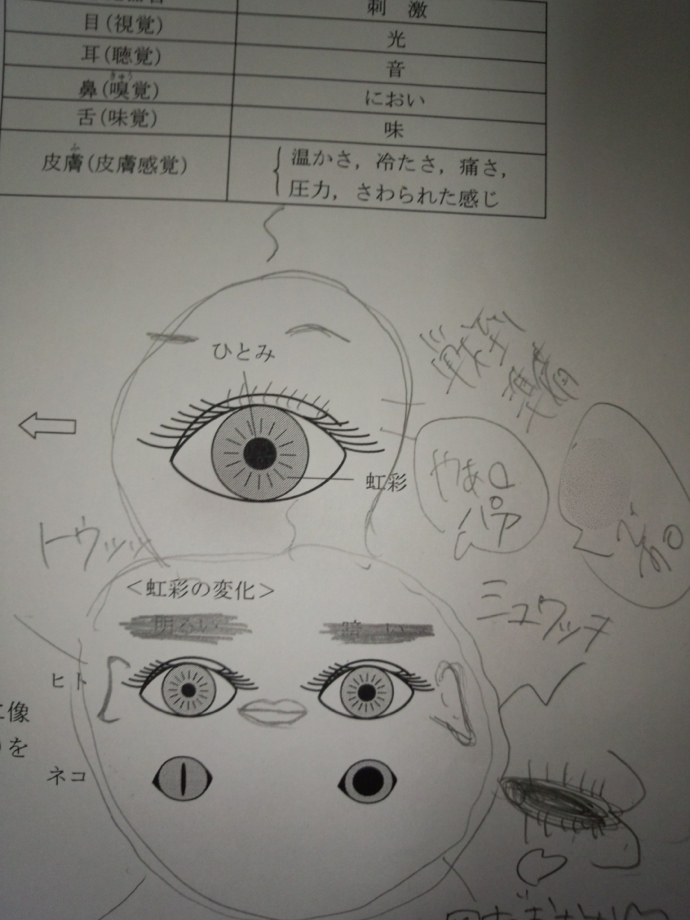 刺激
目(視覚)
光
耳(聴覚)
音
鼻(嗅覚)
きゅう
におい
舌(味覚)
味
皮膚(皮膚感覚)
ふ
温かさ，冷たさ，痛さ，
圧力，さわられた感じ
ひとみ
虹彩
やぁ
トウッッ
<虹彩の変化>
明るい
暗い
ミュワッチ
ヒト
像
を
ネコ